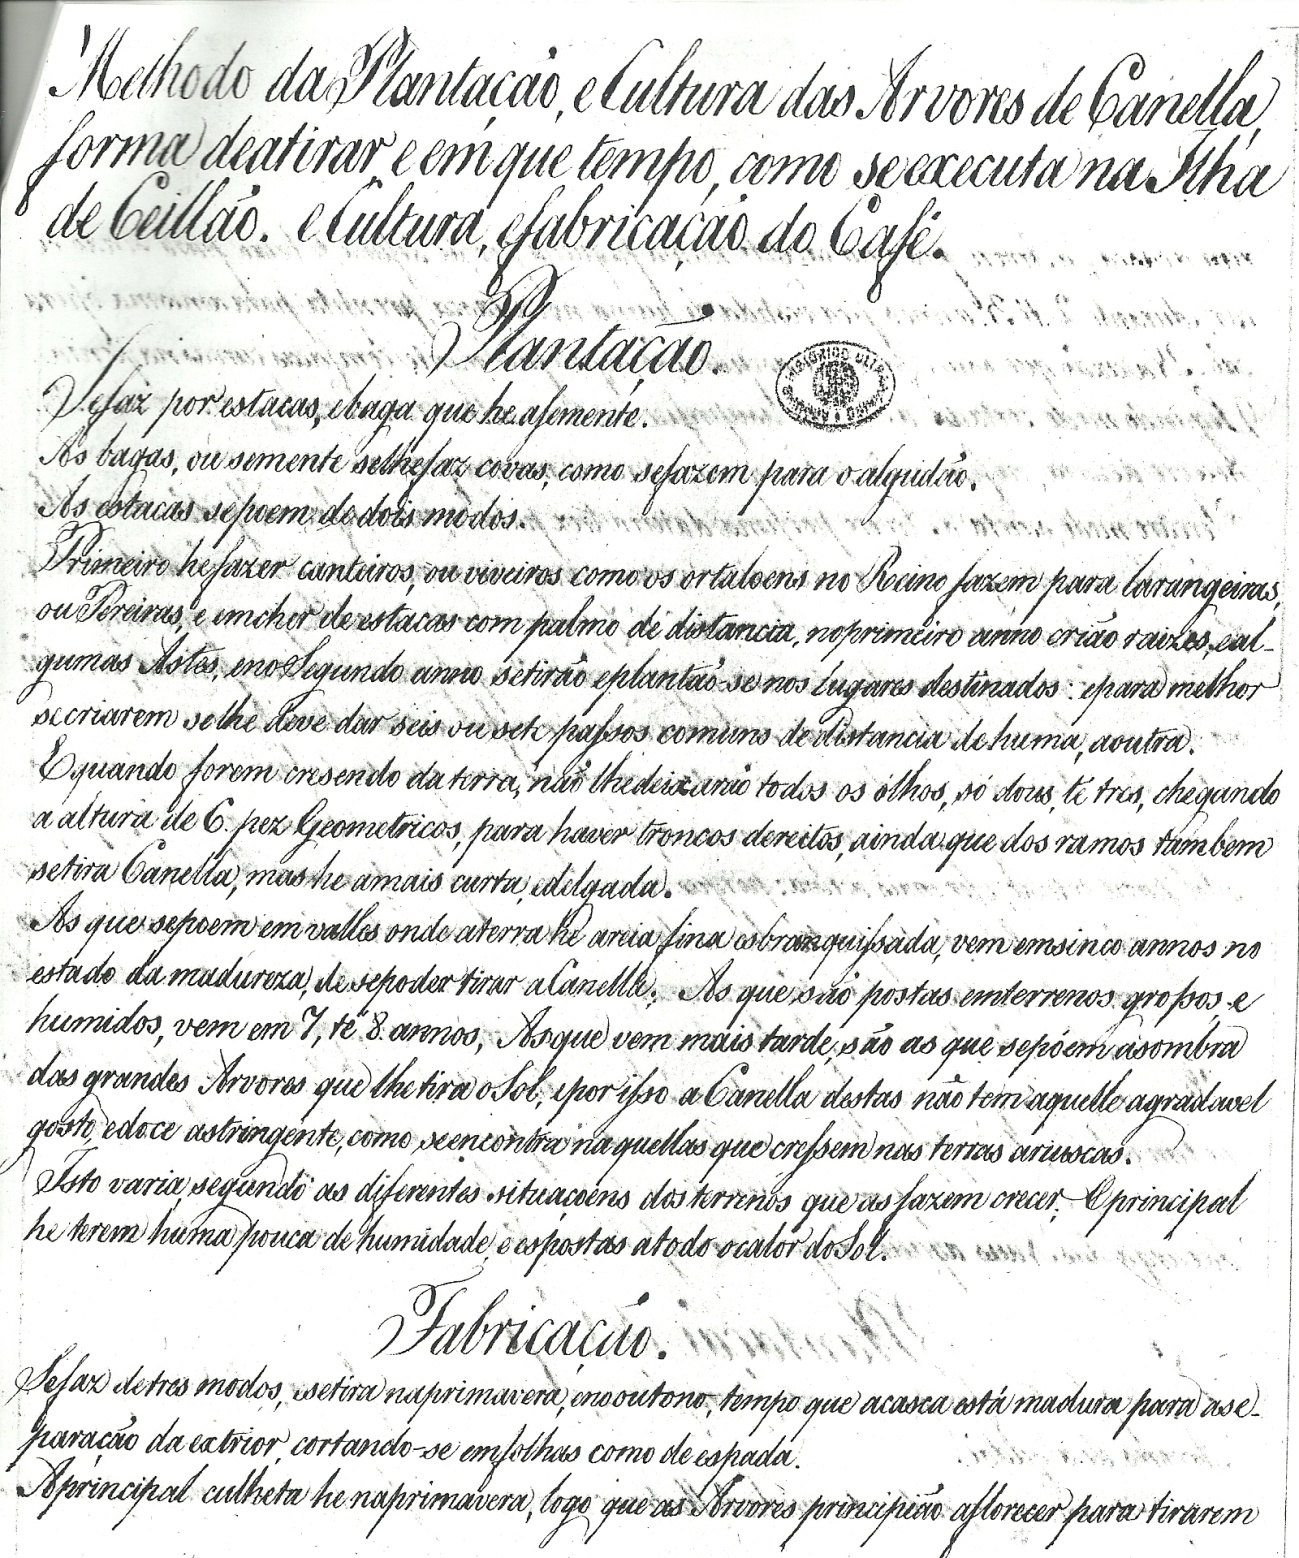 Methodo da Plantação, e Cultura das Arvores de Canella,
forma deatirar, e em que tempo, como se executa na Ilha
de Ceillão. e Cultura, efabricação do Café.
Plantação.
Sefaz por estacas, ebaga que he asemente.
As bagas, ou semente selhefaz covas, como sefazem para o algudão.
As estacas sepoem de dois modos.
Primeiro hefazer canteiros, ou viveiros como os ortaloens no Reino fazem para larangeiras,
ou Pereiras, e emcher de estacas com palmo de distancia, noprimeiro anno crião raizes, eal-
gumas Astes, eno Segundo anno setirão eplantão-se nos lugares destinados: epara melhor
secriarem selhe deve dar seis ou sete passos comuns de distancia de huma, aoutra.
Equando forem cresendo da terra, não lhedeixarão todos os olhos, só dous, té tres, chegando
a altura de 6. pez Geometricos, para haver troncos dereitos, ainda que dos ramos tambem
setira Canella, mas he amais curta, edelgada.
As que sepoem em valles onde aterra he areia fina esbranquissada, vem emsinco annos no
estado da madureza, de sepoder tirar aCanella; As que são postas emterrenos grossos, e
humidos, vem em 7, té 8 annos, Asque vem mais tarde, são as que sepoem asombra
das grandes Arvores que lhetira oSol, epor isso a Canella destas não tem aquelle agradavel
gosto, edoce astringente, como seencontra naquellas que cressem nas terras ariuscas.
Isto varia segundo as diferentes situaçoens dos terrenos que as fazem crecer; Oprincipal
he terem huma pouca de humidade, e espostas atodo ocalor doSol.
Fabricação.
Sefaz detres modos, setira naprimavera, eno outono, tempo que acasca está madura para ase-
paração da extrior, cortando-se emfolhas como de espada.
Aprincipal culheta he naprimavera, logo que as Arvores principião aflorecer para tirarem